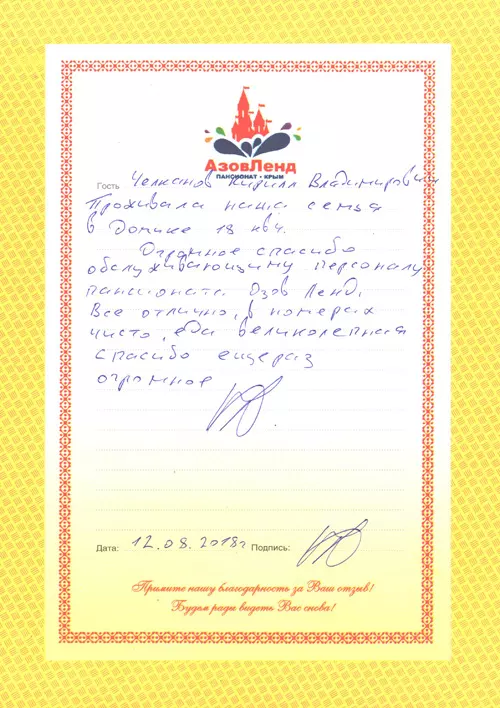 АзовЛенд
ПАНСИОНАТ • КРЫМ
Гость Челканов Кирилл Владимирович
Проживала наша семья
в Домике 18 кв4.
Огромное спасибо
обслуживающиму персоналу
пансионата Озов Ленд.
Все отлично, в номерах
чисто, еда великолепная
спасибо ещераз
огромное
Дата: 12.08.2018г Подпись:
Примите нашу благодарность за Ваш отзыв!
Будем рады видеть Вас снова!